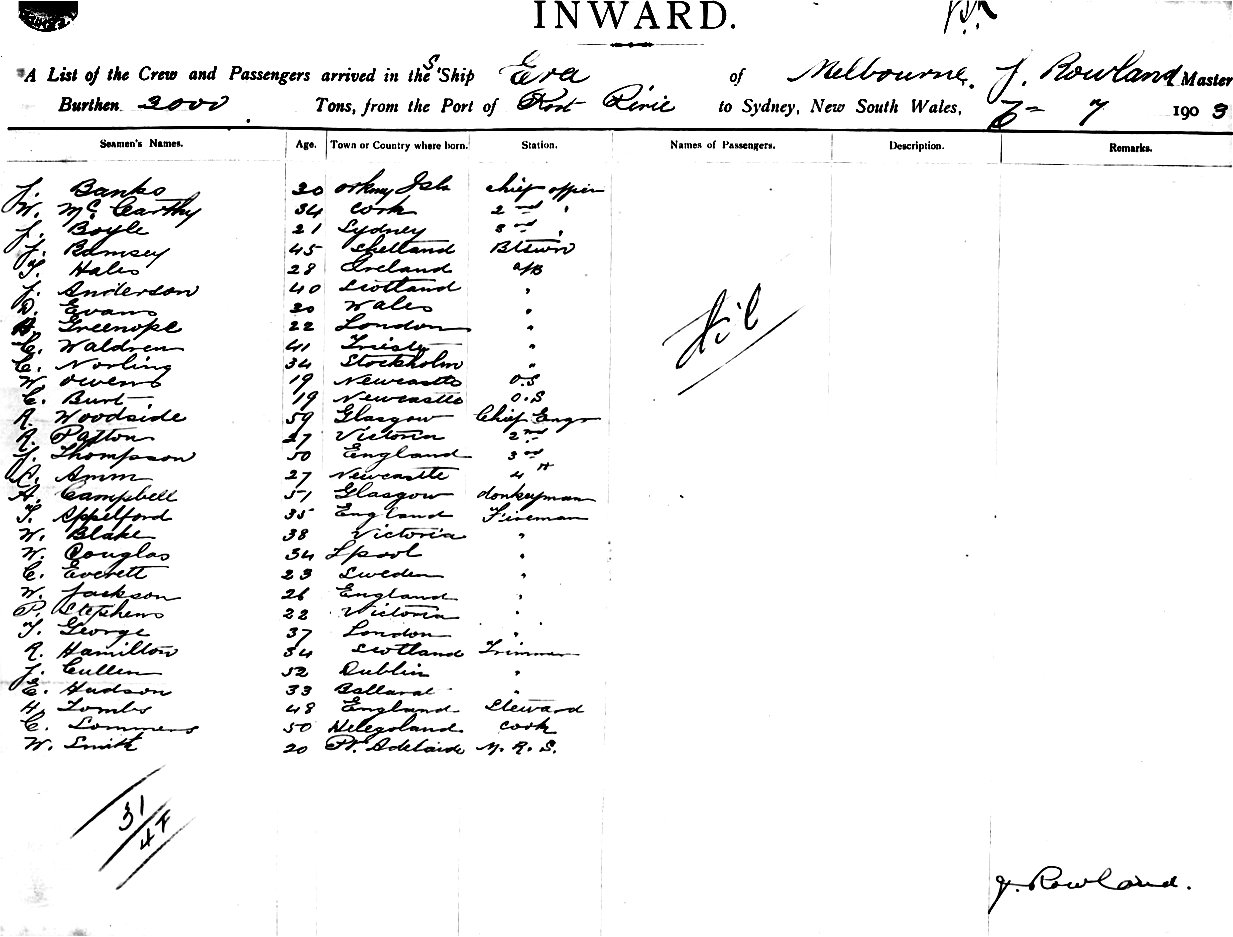 INWARD.
A List of the Crew and Passengers arrived in the S Ship Era of Melbourne, J. Rowland Master
Burthen 2000 Tons, from the Port of Port Pirie to Sydney, New South Wales, 7 1903
Seamen's Names. Age. Town or Country where born. Station. Names of Passengers. Description. Remarks.
J. Banks 30 orkney Isls chief officer
W. McCarthy 34 Cork 2nd "
J. Boyle 21 Sydney 3rd "
J. Ramsey 45 Shetland BtSwn
T. Hales 28 Ireland a/B
J. Anderson 40 Scotland "
D. Evans 30 Wales "
Greenope 22 London "
C. Waldren 41 Trieste "
C. Norling 34 Stockholm "
W. Owens 19 Newcastle O.S
C. Burt 19 Newcastle O.S
R. Woodside 59 Glasgow Chief Engr
R. Patton 27 Victoria 2nd
J. Thompson 50 England 3rd
C. Amm 27 Newcastle 4th
A. Campbell 51 Glasgow donkeyman
T. Appelford 35 England Fireman
W. Blake 38 Victoria "
W. Douglas 34 Lpool "
C. Everett 23 Sweden "
W. Jackson 26 England "
P. Stephens 22 Victoria "
T. George 37 London "
R. Hamilton 34 Scotland Trimmer
J. Cullen 52 Dublin "
E. Hudson 33 Ballarat "
H. Tombs 48 England Steward
C. Lommers 50 Helegoland Cook
W. Smith 20 Pt. Adelaide M. R. S.
Nil
31
4F
J. Rowland.